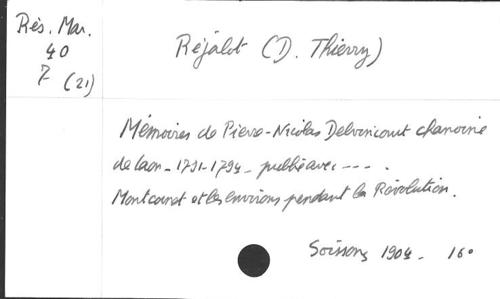 Rés. Mar.
40
7 (21)
Réjalot (D. Thierry)
Mémoires de Pierre-Nicolas Delvincourt chanoine
de Laon - 1791-1794 - publié avec --- .
Montcornet et les environs pendant la Révolution.
Soissons 1904 - 16°